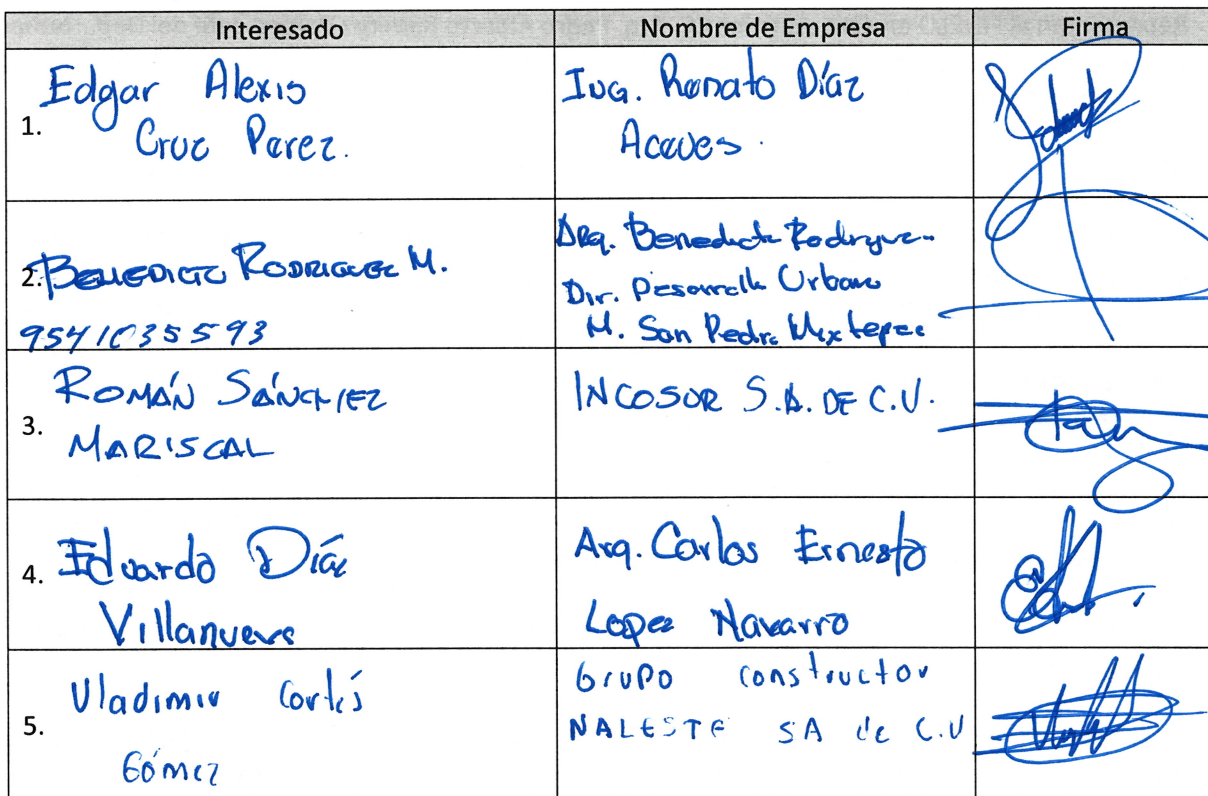 Interesado Nombre de Empresa Firma
1. Edgar Alexis
Cruz Perez.
Ing. Renato Díaz
Aceves.
2. BENEDICTO RODRIGUEZ M.
9541035593
Arq. Benedicto Rodriguez
Dir. Desarrollo Urbano
M. San Pedro Mixtepec
3. ROMÁN SÁNCHEZ
MARISCAL
INCOSUR S.A. DE C.V.
4. Eduardo Díaz
Villanueva
Arq. Carlos Ernesto
Lopez Navarro
5. Vladimir Cortés
Gómez
Grupo constructor
NALESTE SA de C.V